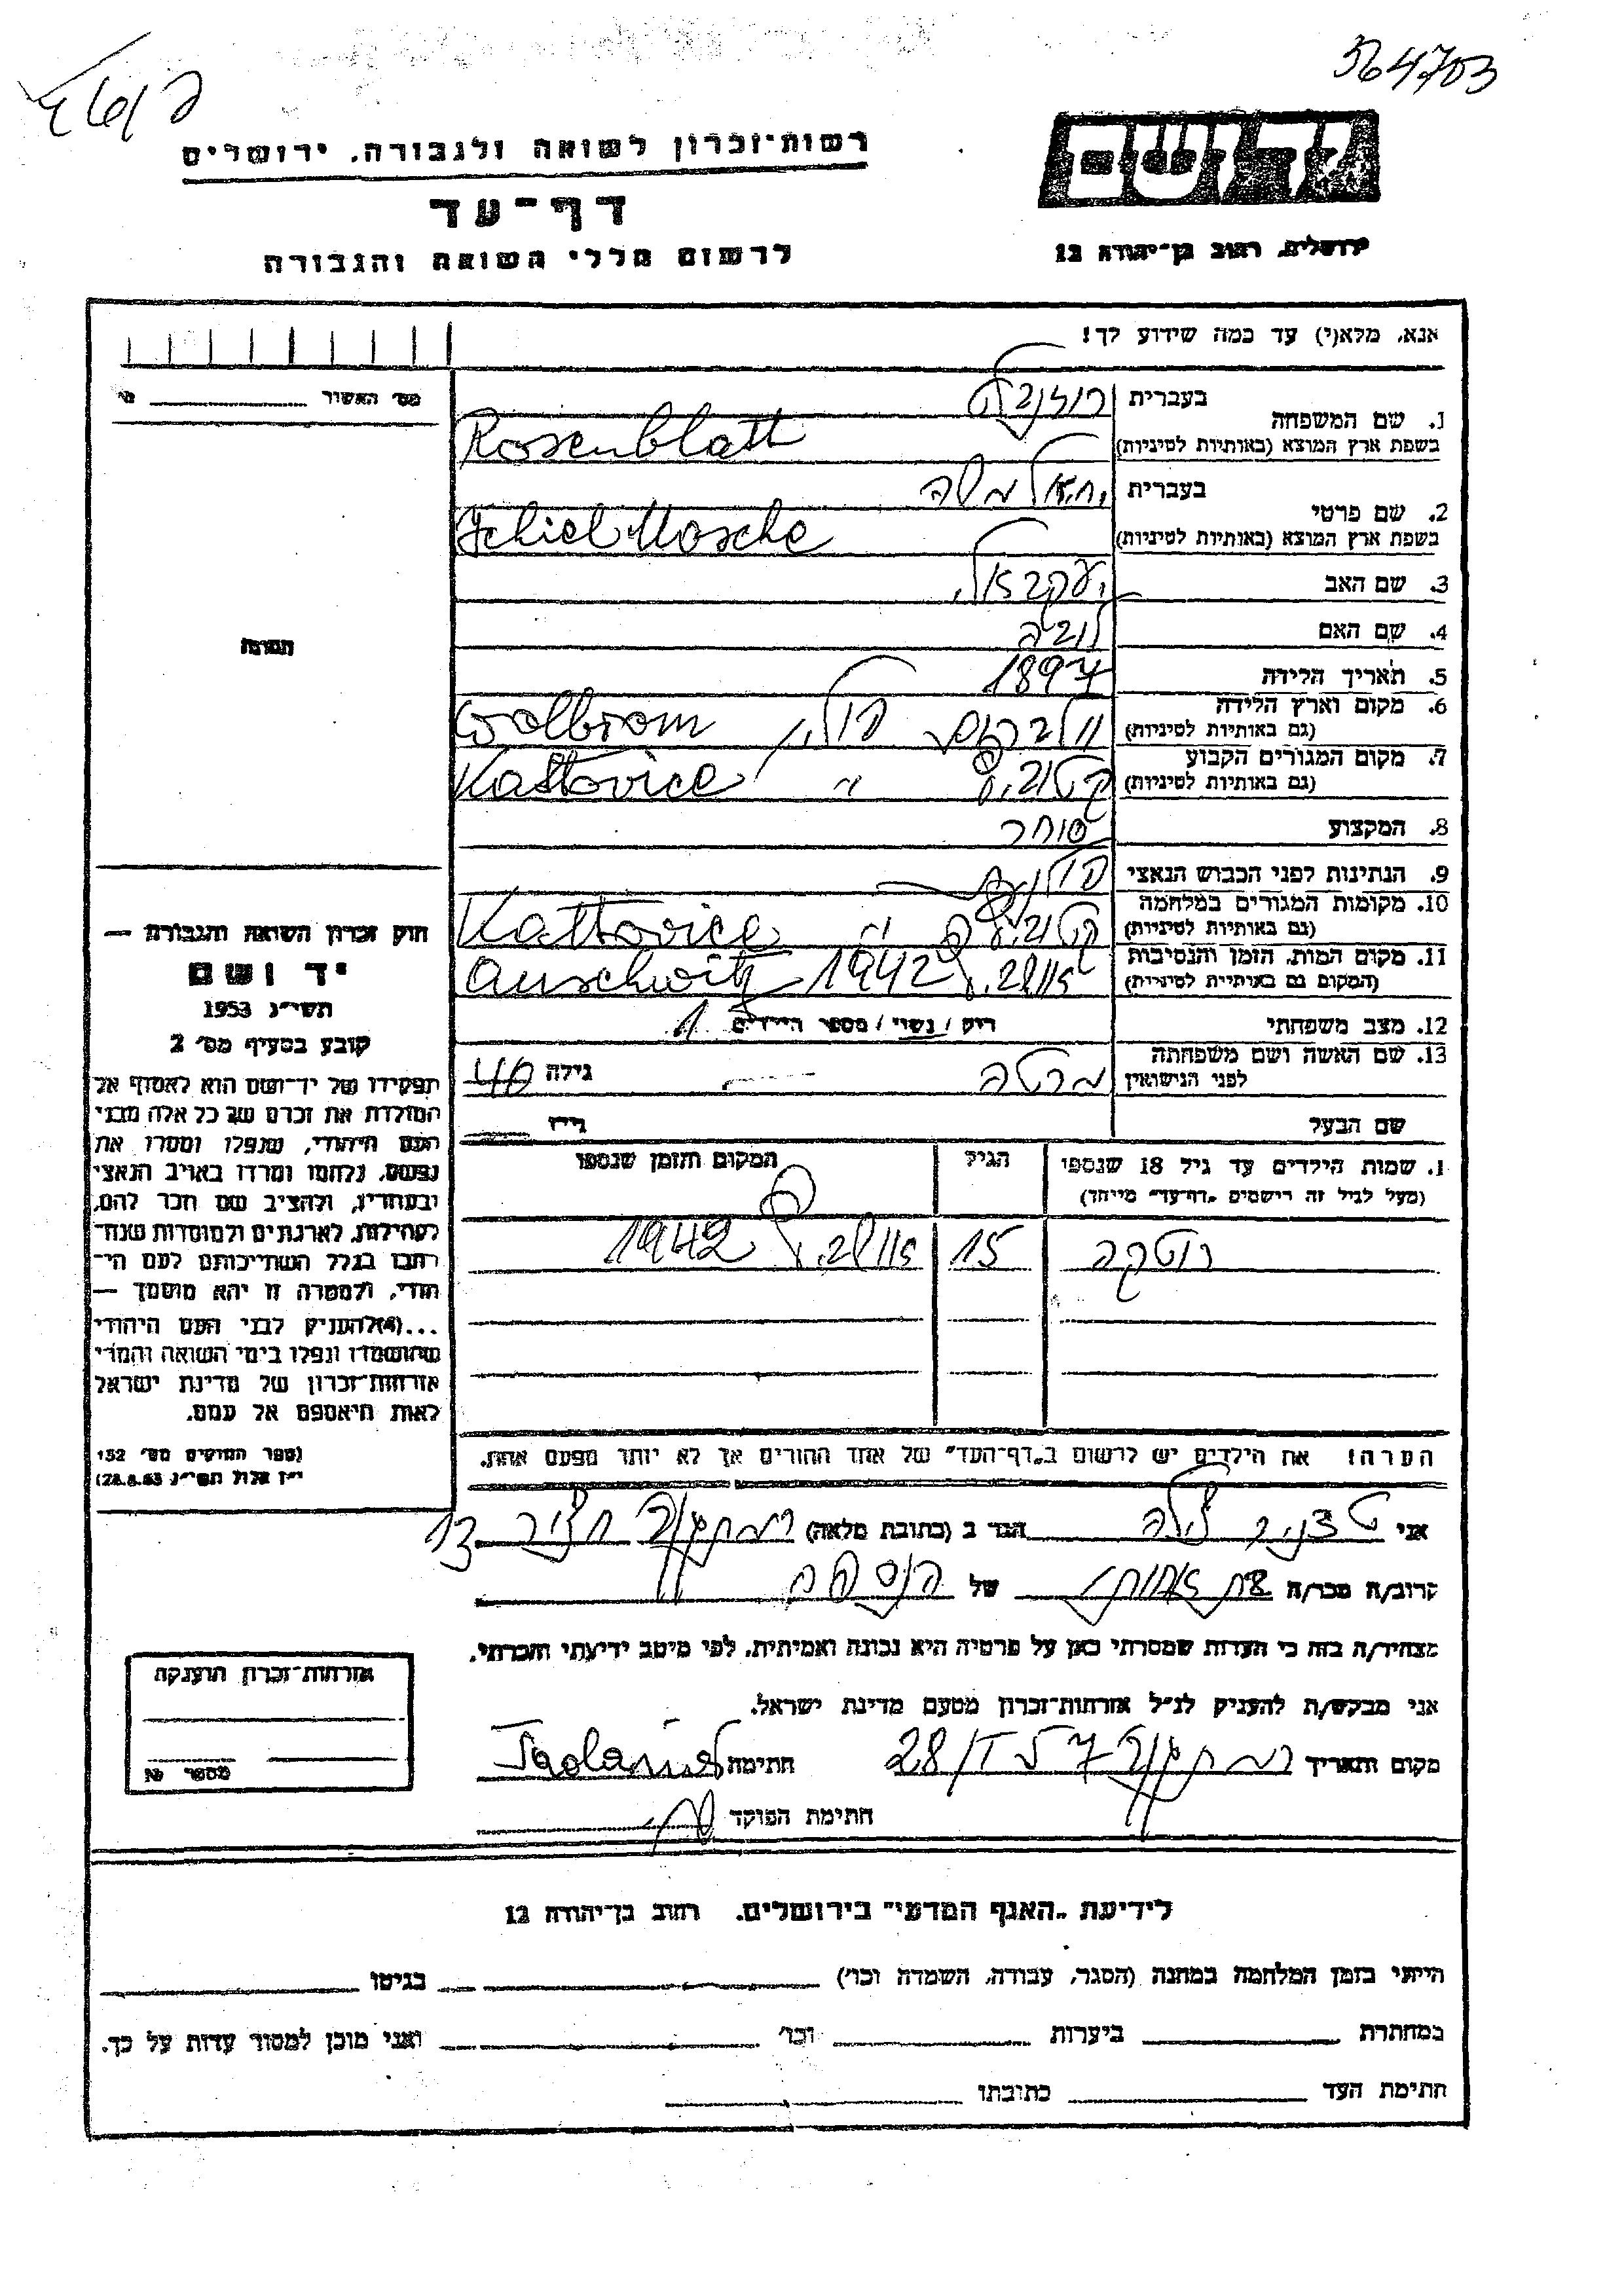 364703
רשות־זכרון לשואה ולגבורה, ירושלים
יד ושם
דף־עד
ירושלים, רחוב בן־יהודה 12
לרשום חללי השואה והגבורה
אנא, מלא(י) עד כמה שידוע לך!
מס׳ האשור
1. שם המשפחה
בעברית רוזנבלט
בשפת ארץ המוצא (באותיות לטיניות) Rosenblatt
2. שם פרטי
בעברית יחיאל משה
בשפת ארץ המוצא (באותיות לטיניות) Jchiel Mosche
3. שם האב
4. שם האם
5. תאריך הלידה 1897
6. מקום וארץ הלידה וולברום פולין Wolbrom
(גם באותיות לטיניות)
7. מקום המגורים הקבוע קטוביץ " Kattovice
(גם באותיות לטיניות)
8. המקצוע סוחר
9. הנתינות לפני הכבוש הנאצי פולנית
10. מקומות המגורים במלחמה " Kattovice
(גם באותיות לטיניות)
11. מקום המות, הזמן והנסיבות אושביץ 1942 Auschwitz
(המקום גם באותיות לטיניות)
12. מצב משפחתי רווק / נשוי / מספר הילדים 1
13. שם האשה ושם משפחתה
לפני הנישואין גילה 40
שם הבעל גילו
1. שמות הילדים עד גיל 18 שנספו
(מעל לגיל זה רישמים „דף־עד" מייחד)
הגיל
המקום והזמן שנספו
רוטקה 15 אושביץ 1942
הערה! את הילדים יש לרשום ב„דף־העד" של אחד ההורים אך לא יותר מפעם אחת.
תמונה
חוק זכרון השואה והגבורה —
יד ושם
תשי״ג 1953
קובע בסעיף מס׳ 2
תפקידו של יד־ושם הוא לאסוף אל
המולדת את זכרם של כל אלה מבני
העם היהודי, שנפלו ומסרו את
נפשם, נלחמו ומרדו באויב הנאצי
ובעוזריו, ולהציב שם וזכר להם,
לקהילות, לארגונים ולמוסדות שנח־
רבו בגלל השתייכותם לעם הי־
הודי, ולמטרה זו יהא מוסמך —
...(4) להעניק לבני העם היהודי
שהושמדו ונפלו בימי השואה והמרי
אזרחות־זכרון של מדינת ישראל
לאות היאספם אל עמם.
(ספר החוקים מס׳ 132
י״ז אלול תשי״ג 28.8.53)
אני הגר ב (כתובת מלאה) רמת גן 13
קרוב/ה מכר/ה של הנספה
מצהיר/ה בזה כי העדות שמסרתי כאן על פרטיה היא נכונה ואמיתית, לפי מיטב ידיעתי והכרתי.
אני מבקש/ת להעניק לנ״ל אזרחות־זכרון מטעם מדינת ישראל.
מקום ותאריך רמת גן 28/ חתימה
חתימת הפוקד
אזרחות־זכרון הוענקה
מספר №
לידיעת „האגף המדעי" בירושלים. רחוב בן־יהודה 12
הייתי בזמן המלחמה במחנה (הסגר, עבודה, השמדה וכו׳) בגיטו
במחתרת ביערות וכו׳ ואני מוכן למסור עדות על כך.
חתימת העד כתובתו